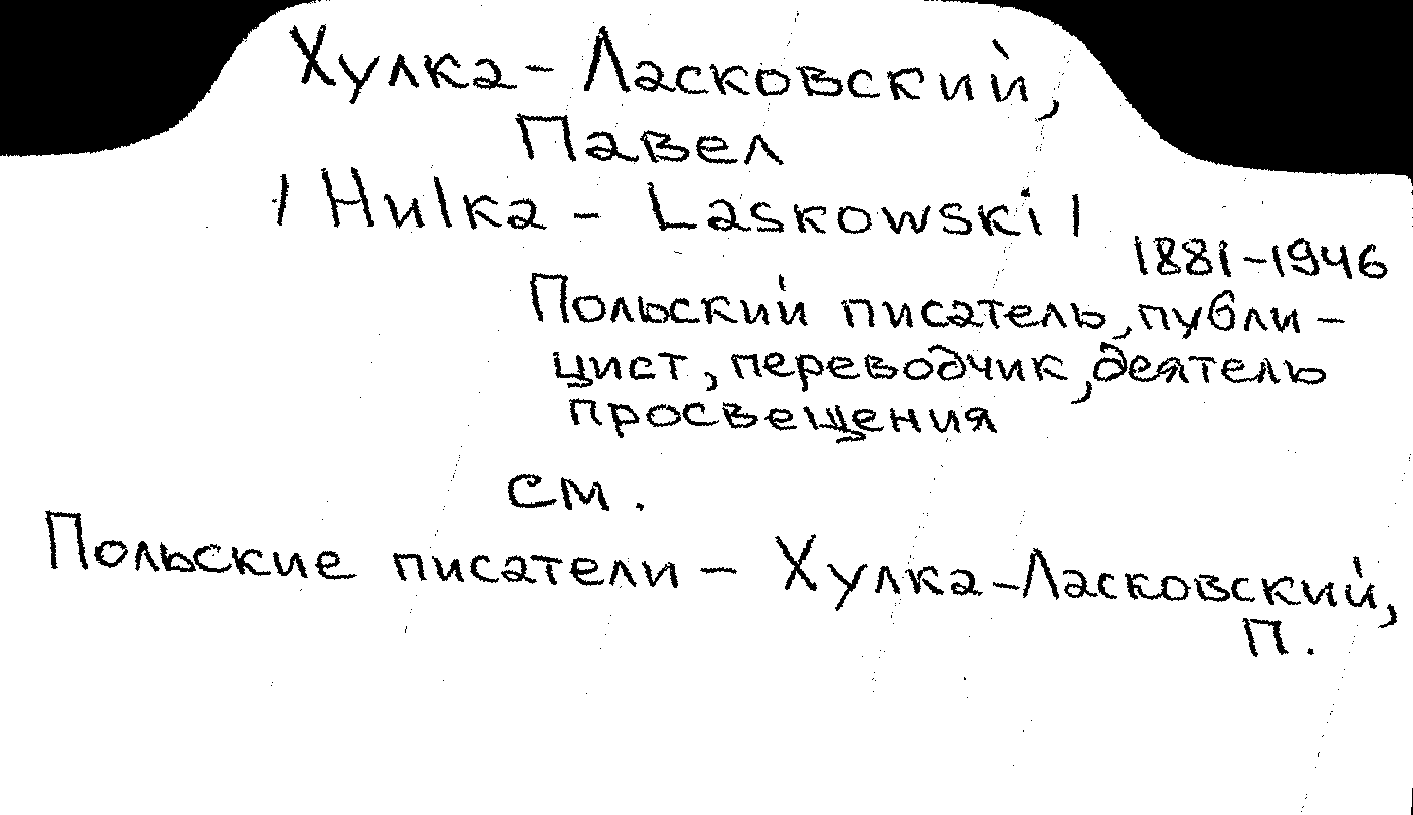 Хулка-Ласковский,
Павел
/Hulka - Laskowski/
1881-1946
Польский писатель, публи-
цист, переводчик, деятель
просвещения
см.
Польские писатели - Хулка-Ласковский,
П.